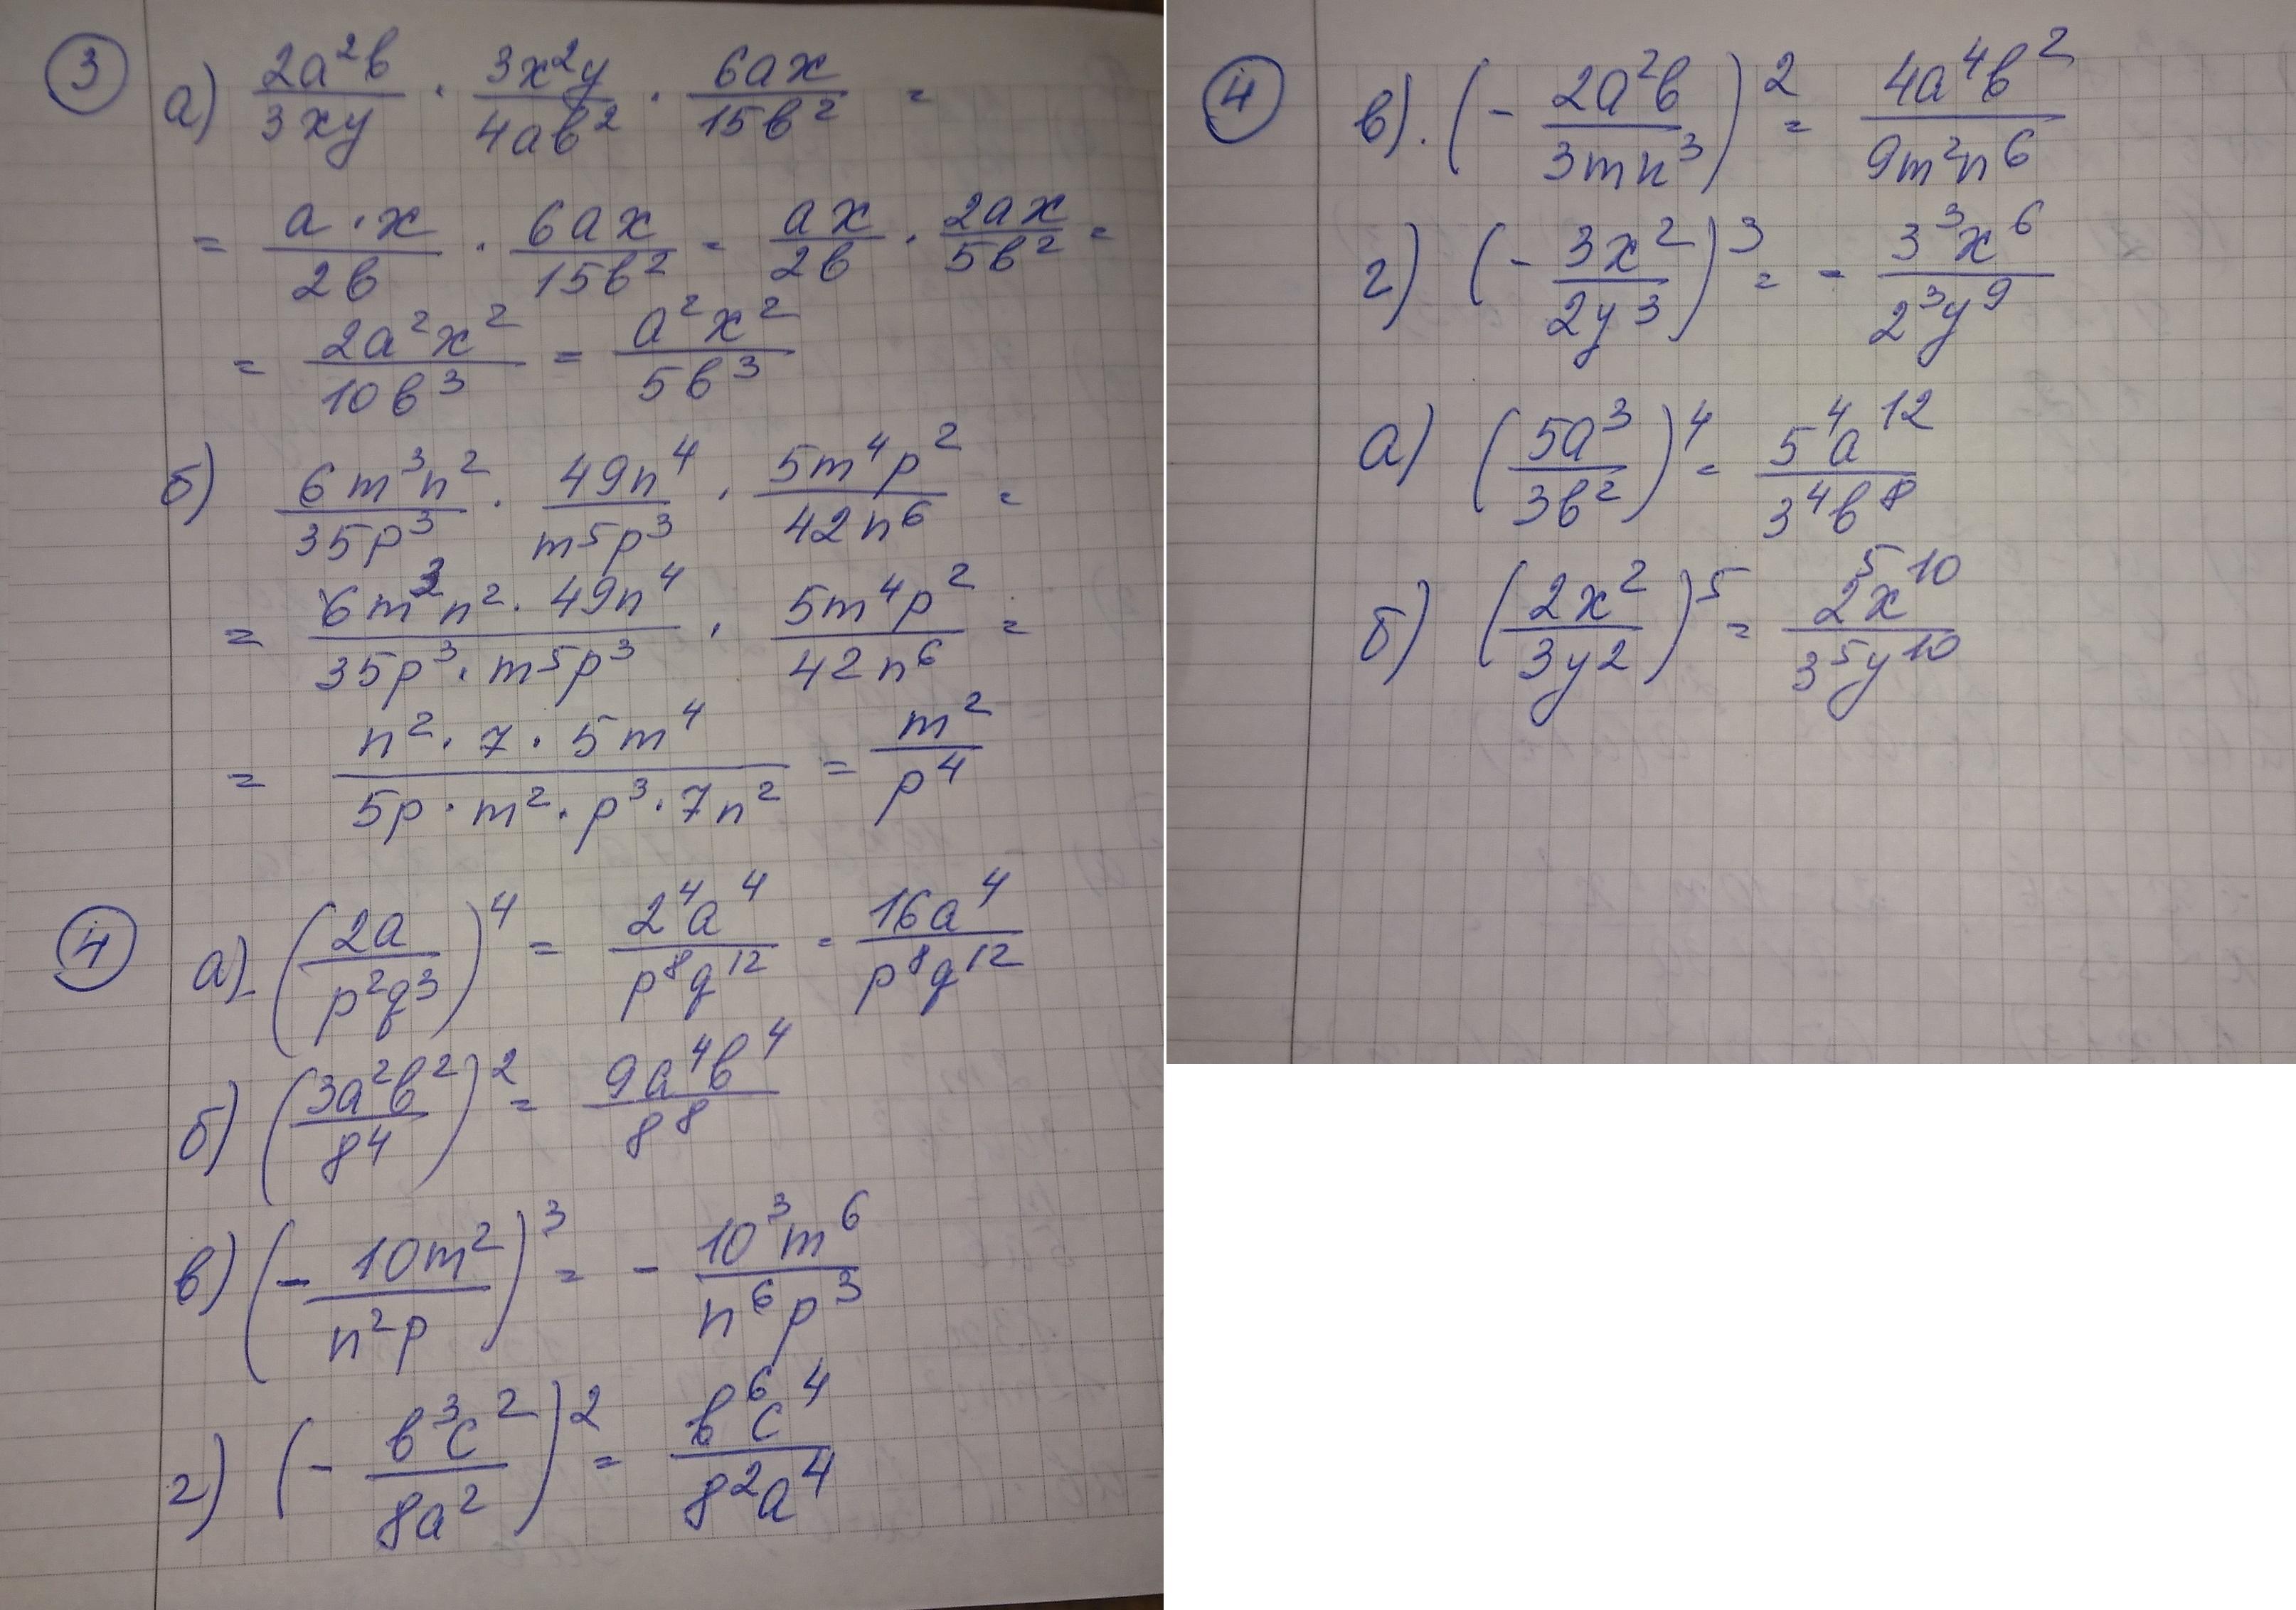 3 а) 2a²b/3xy · 3x²y/4ab² · 6ax/15b² =
= a·x/2b · 6ax/15b² = ax/2b · 2ax/5b² =
= 2a²x²/10b³ = a²x²/5b³
б) 6m³n²/35p³ · 49n⁴/m⁵p³ · 5m⁴p²/42n⁶ =
= 6m³n² · 49n⁴/35p³ · m⁵p³ · 5m⁴p²/42n⁶ =
= n² · 7 · 5m⁴/5p · m² · p³ · 7n² = m²/p⁴
4 а). (2a/p²q³)⁴ = 2⁴a⁴/p⁸q¹² = 16a⁴/p⁸q¹²
б) (3a²b²/8⁴)² = 9a⁴b⁴/8⁸
в) (- 10m²/n²p)³ = - 10³m⁶/n⁶p³
г) (- b³c²/8a²)² = b⁶c⁴/8²a⁴
4 в). (- 2a²b/3mn³)² = 4a⁴b²/9m²n⁶
г) (- 3x²/2y³)³ = - 3³x⁶/2³y⁹
а) (5a³/3b²)⁴ = 5⁴a¹²/3⁴b⁸
б) (2x²/3y²)⁵ = 2⁵x¹⁰/3⁵y¹⁰